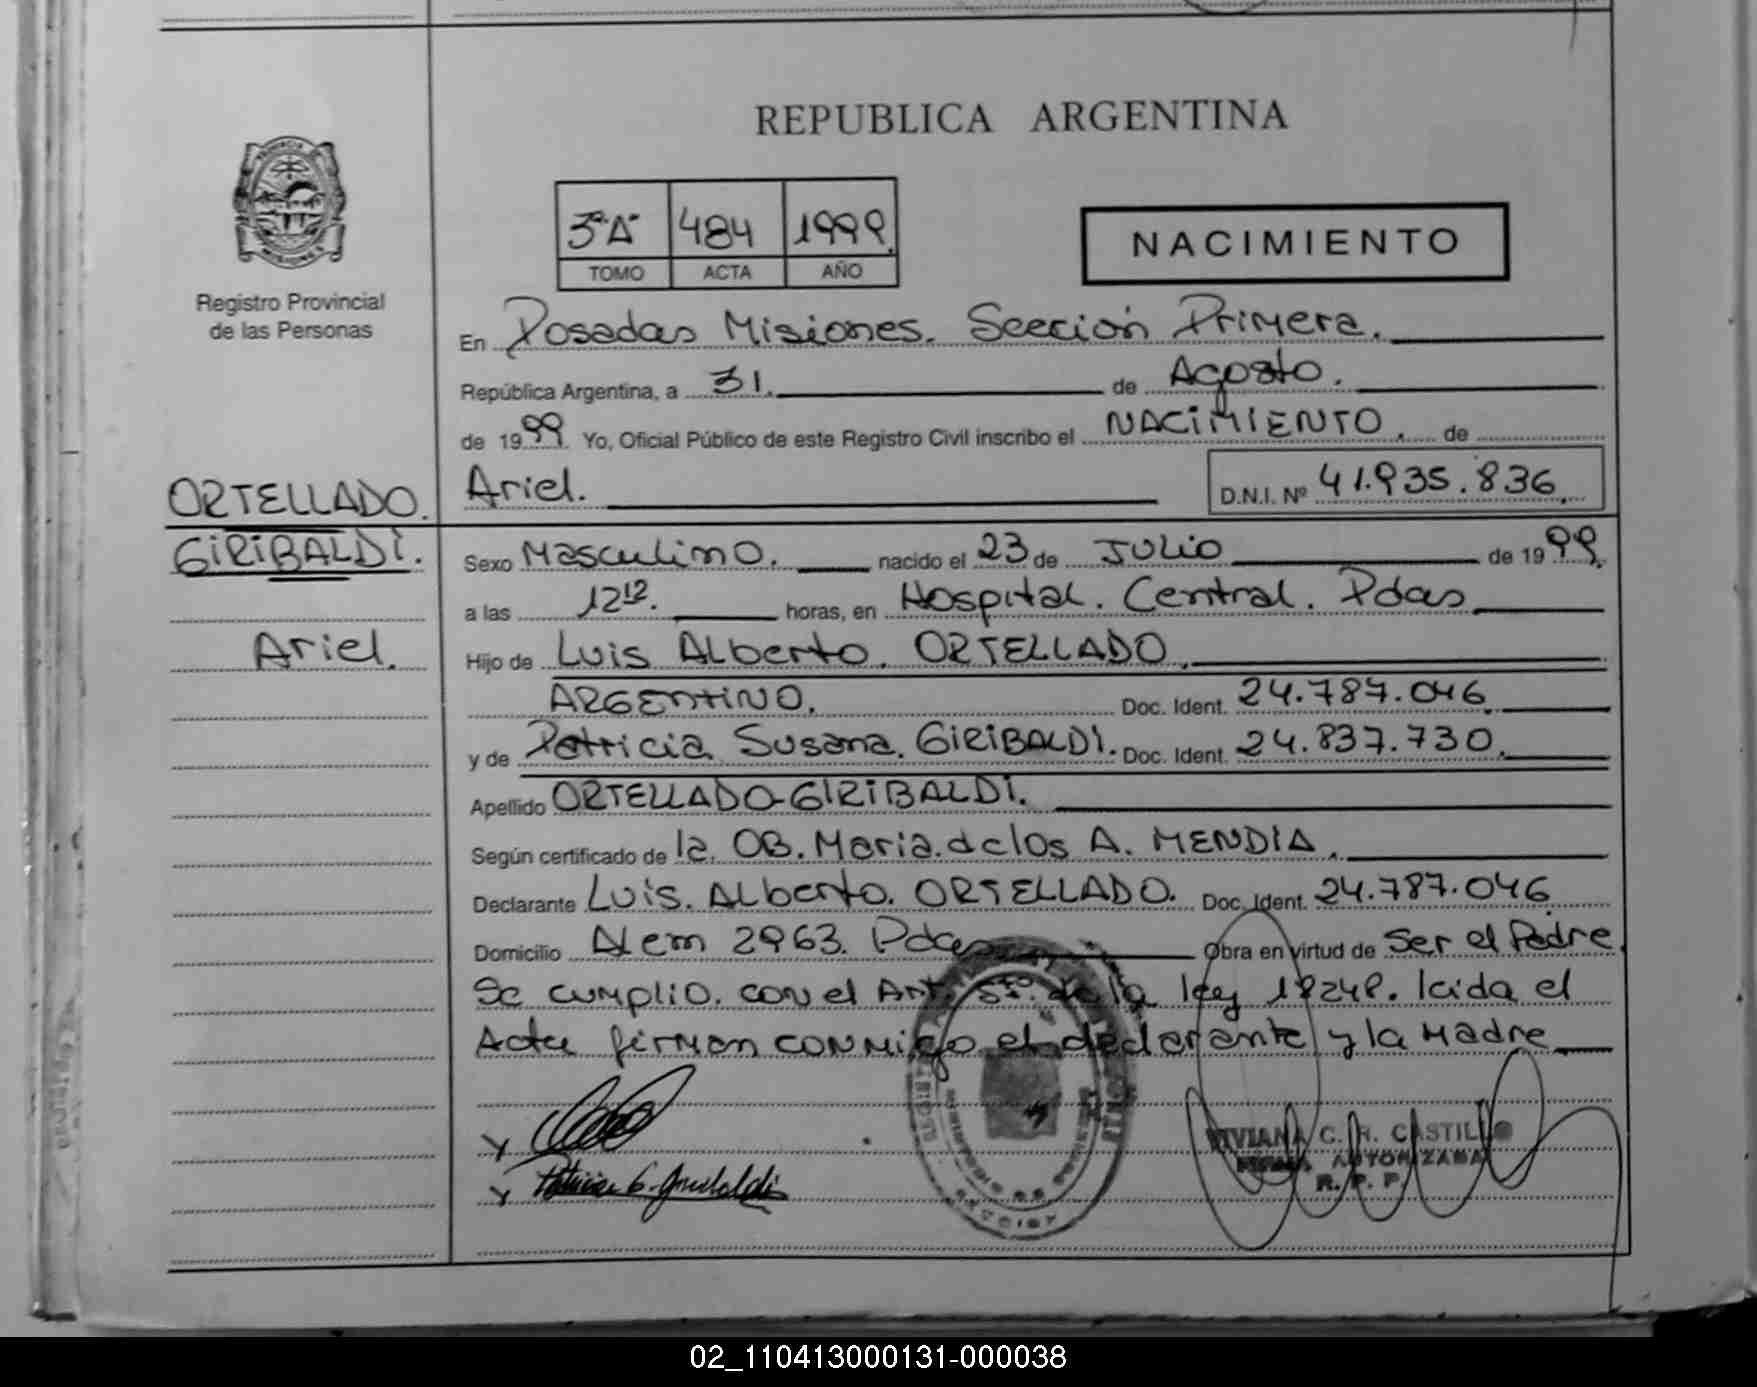 REPUBLICA ARGENTINA
3º"A" 484 1999.
TOMO ACTA AÑO
NACIMIENTO
Registro Provincial
de las Personas
En Posadas Misiones. Sección Primera.
República Argentina, a 31. de Agosto.
de 1999. Yo, Oficial Público de este Registro Civil inscribo el NACIMIENTO. de
Ariel. D.N.I. Nº 41.935.836.
ORTELLADO.
GIRIBALDI.
Ariel.
Sexo Masculino. nacido el 23 de JULIO de 1999.
a las 12 12. horas, en Hospital. Central. Pdas
Hijo de Luis ALberto. ORTELLADO.
ARGENTINO. Doc. Ident. 24.787.046.
y de Patricia Susana. GIRIBALDI. Doc. Ident. 24.837.730.
Apellido ORTELLADO-GIRIBALDI.
Según certificado de la. OB. Maria. de los A. MENDIA.
Declarante Luis. ALberto. ORTELLADO. Doc. Ident. 24.787.046.
Domicilio Alem 2963. Pdas Obra en virtud de ser el Padre.
Se cumplio. con el Art. 5to. de la ley 18248. leida el
Acta firman conmigo el declarante y la Madre
VIVIANA C. R. CASTILLO
FIRMA AUTORIZADA
R. P. P.
02_110413000131-000038